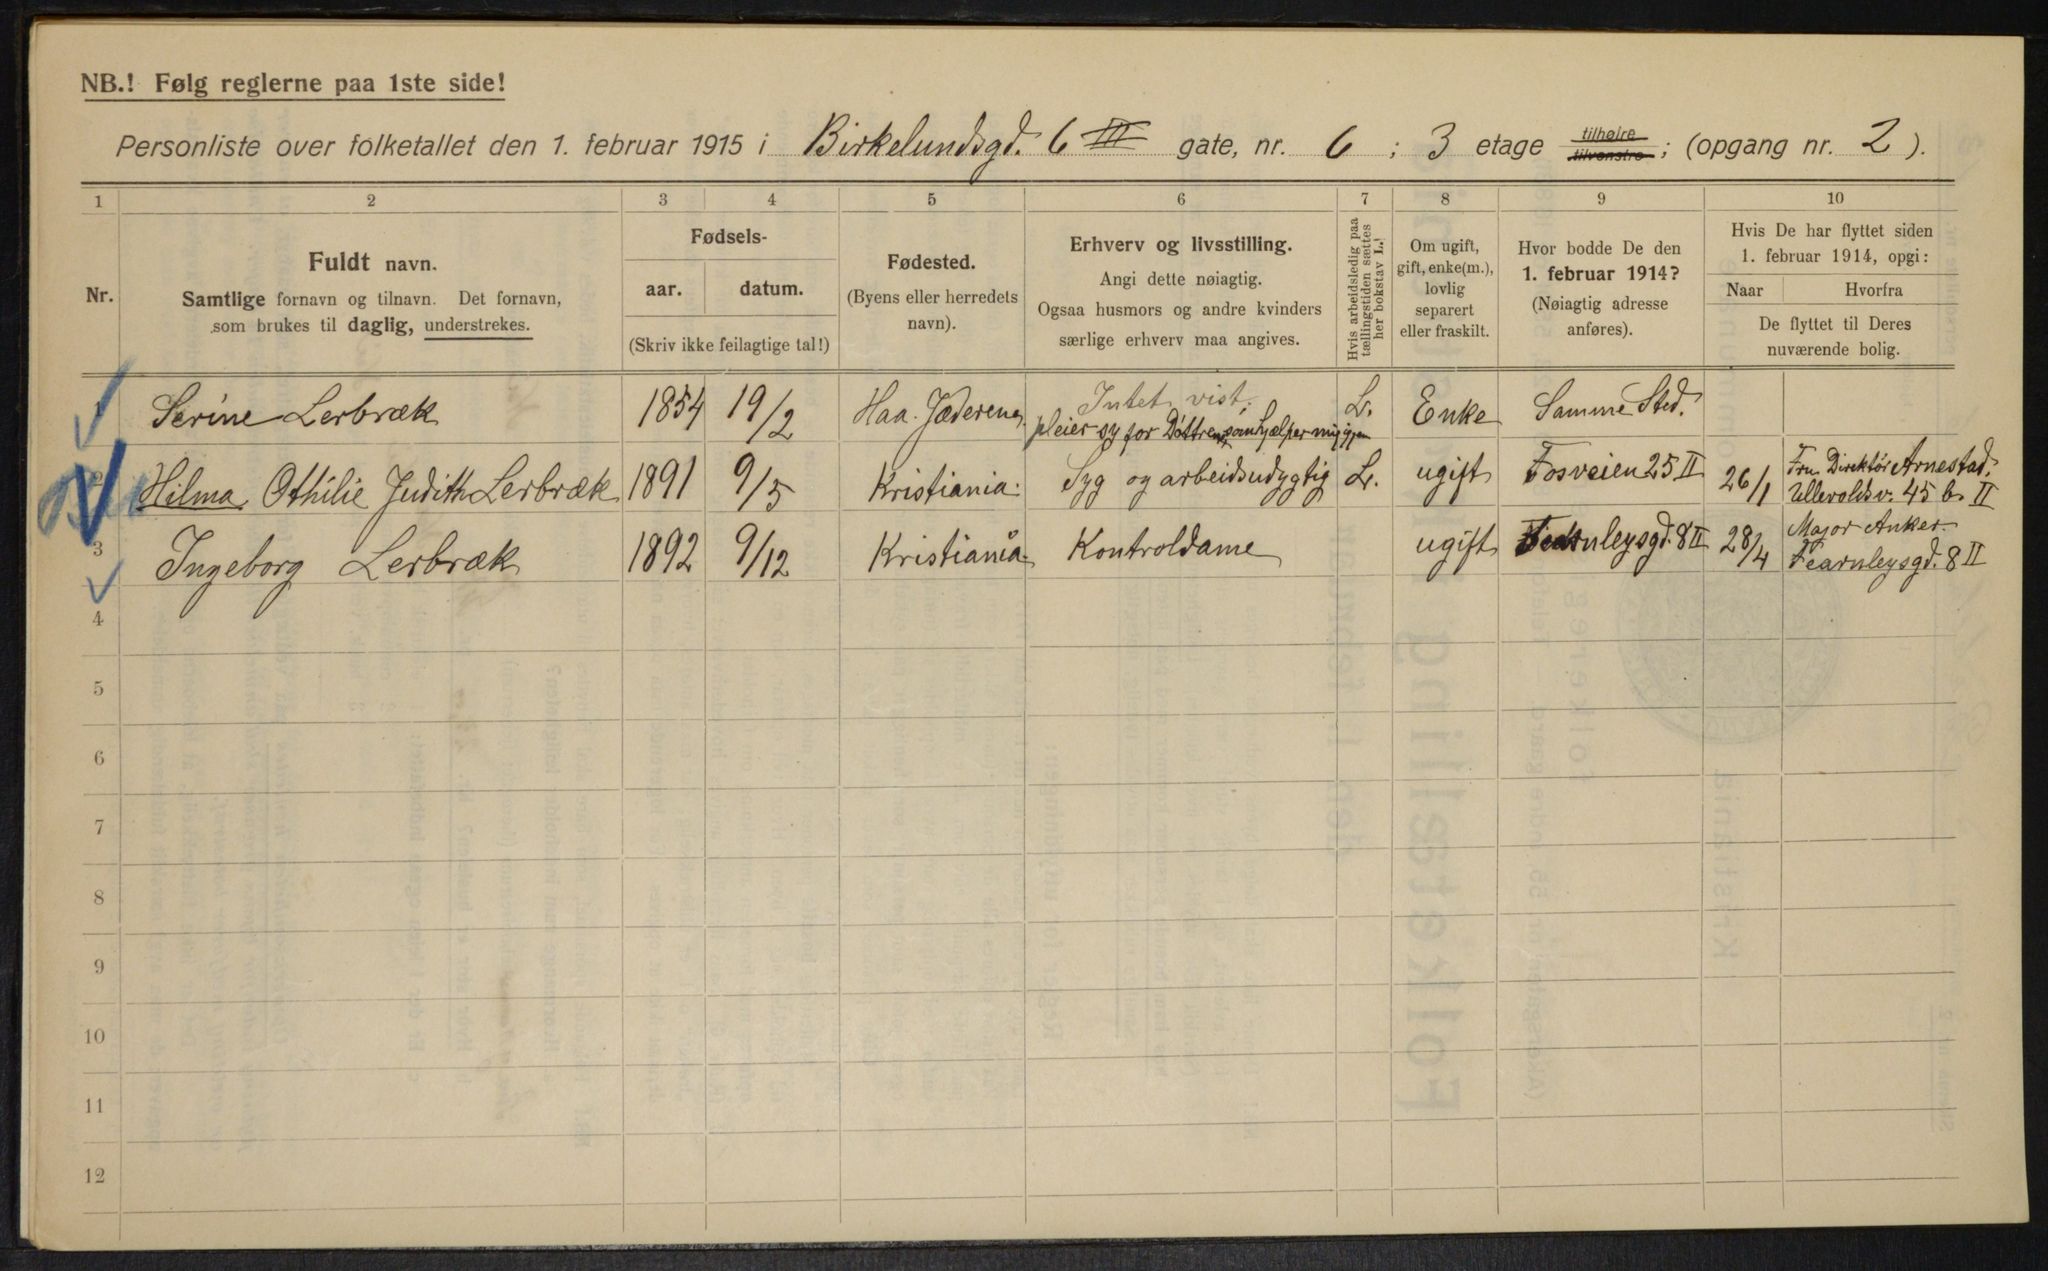 NB.! Følg reglerne paa 1ste side!
Personliste over folketallet den 1. februar 1915 i Birkelundsgd. 6 III gate, nr. 6 ; 3 etage tilhøire tilvenstre ; (opgang nr. 2 ).
1 2 3 4 5 6 7 8 9 10
Nr.
Fuldt navn.
Samtlige fornavn og tilnavn. Det fornavn,
som brukes til daglig, understrekes.
Fødsels-
aar. datum.
(Skriv ikke feilagtige tal!)
Fødested.
(Byens eller herredets
navn).
Erhverv og livsstilling.
Angi dette nøiagtig.
Ogsaa husmors og andre kvinders
særlige erhverv maa angives.
Hvis arbeidsledig paa
tællingstiden sættes
her bokstav L.!
Om ugift,
gift, enke(m.),
lovlig
separert
eller fraskilt.
Hvor bodde De den
1. februar 1914?
(Nøiagtig adresse
anføres).
Hvis De har flyttet siden
1. februar 1914, opgi:
Naar Hvorfra
De flyttet til Deres
nuværende bolig.
1 Serine Lerbræk 1854 19/2 Haa. Jæderen. Intet vist; L. Enke Samme Sted.
pleier sy for Døttrene, som hjælper mig igjen
2 Hilma Othilie Judith Lerbræk 1891 9/5 Kristiania. Syg og arbeidsudygtig L. ugift Fosveien 25 II 26/1 Fru Direktør Arnestad.
Ullevoldsv. 45 b. II
3 Ingeborg Lerbræk 1892 9/12 Kristiania. Kontroldame ugift Fearnleysgd. 8 II 28/4 Major Anker.
Fearnleysgd. 8 II
4
5
6
7
8
9
10
11
12